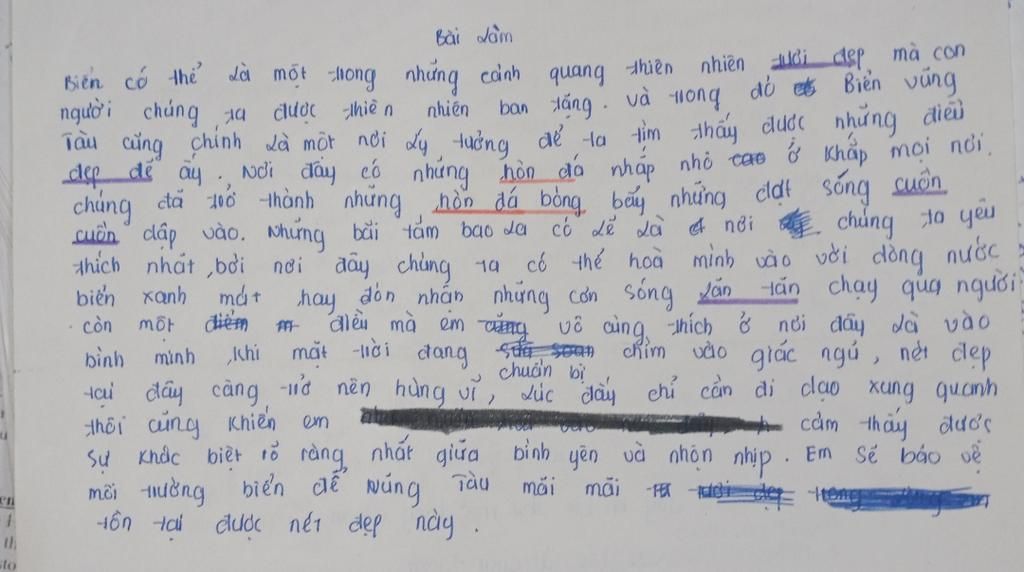 Bài làm
Biển có thể là một trong những cảnh quang thiên nhiên tươi đẹp mà con
người chúng ta được thiên nhiên ban tặng. Và trong đó Biển Vũng
Tàu cũng chính là một nơi lý tưởng để ta tìm thấy được những điều
đẹp đẽ ấy. Nơi đây có những hòn đá nhấp nhô ở khắp mọi nơi.
chúng đã trở thành những hòn đá bóng bẩy những đợt sóng cuồn
cuồn dập vào. Những bãi tắm bao la có lẽ là nơi chúng ta yêu
thích nhất, bởi nơi đây chúng ta có thể hoà mình vào với dòng nước
biển xanh mát hay đón nhận những cơn sóng lăn tăn chạy qua người
còn một điều mà em vô cùng thích ở nơi đây là vào
bình minh, khi mặt trời đang chìm vào giấc ngủ, nét đẹp
chuẩn bị
tại đây càng trở nên hùng vĩ, lúc đấy chỉ cần đi dạo xung quanh
thôi cũng khiến em cảm thấy được
sự khác biệt rõ ràng nhất giữa bình yên và nhộn nhịp. Em sẽ bảo vệ
môi trường biển để Vũng Tàu mãi mãi
tồn tại được nét đẹp này.